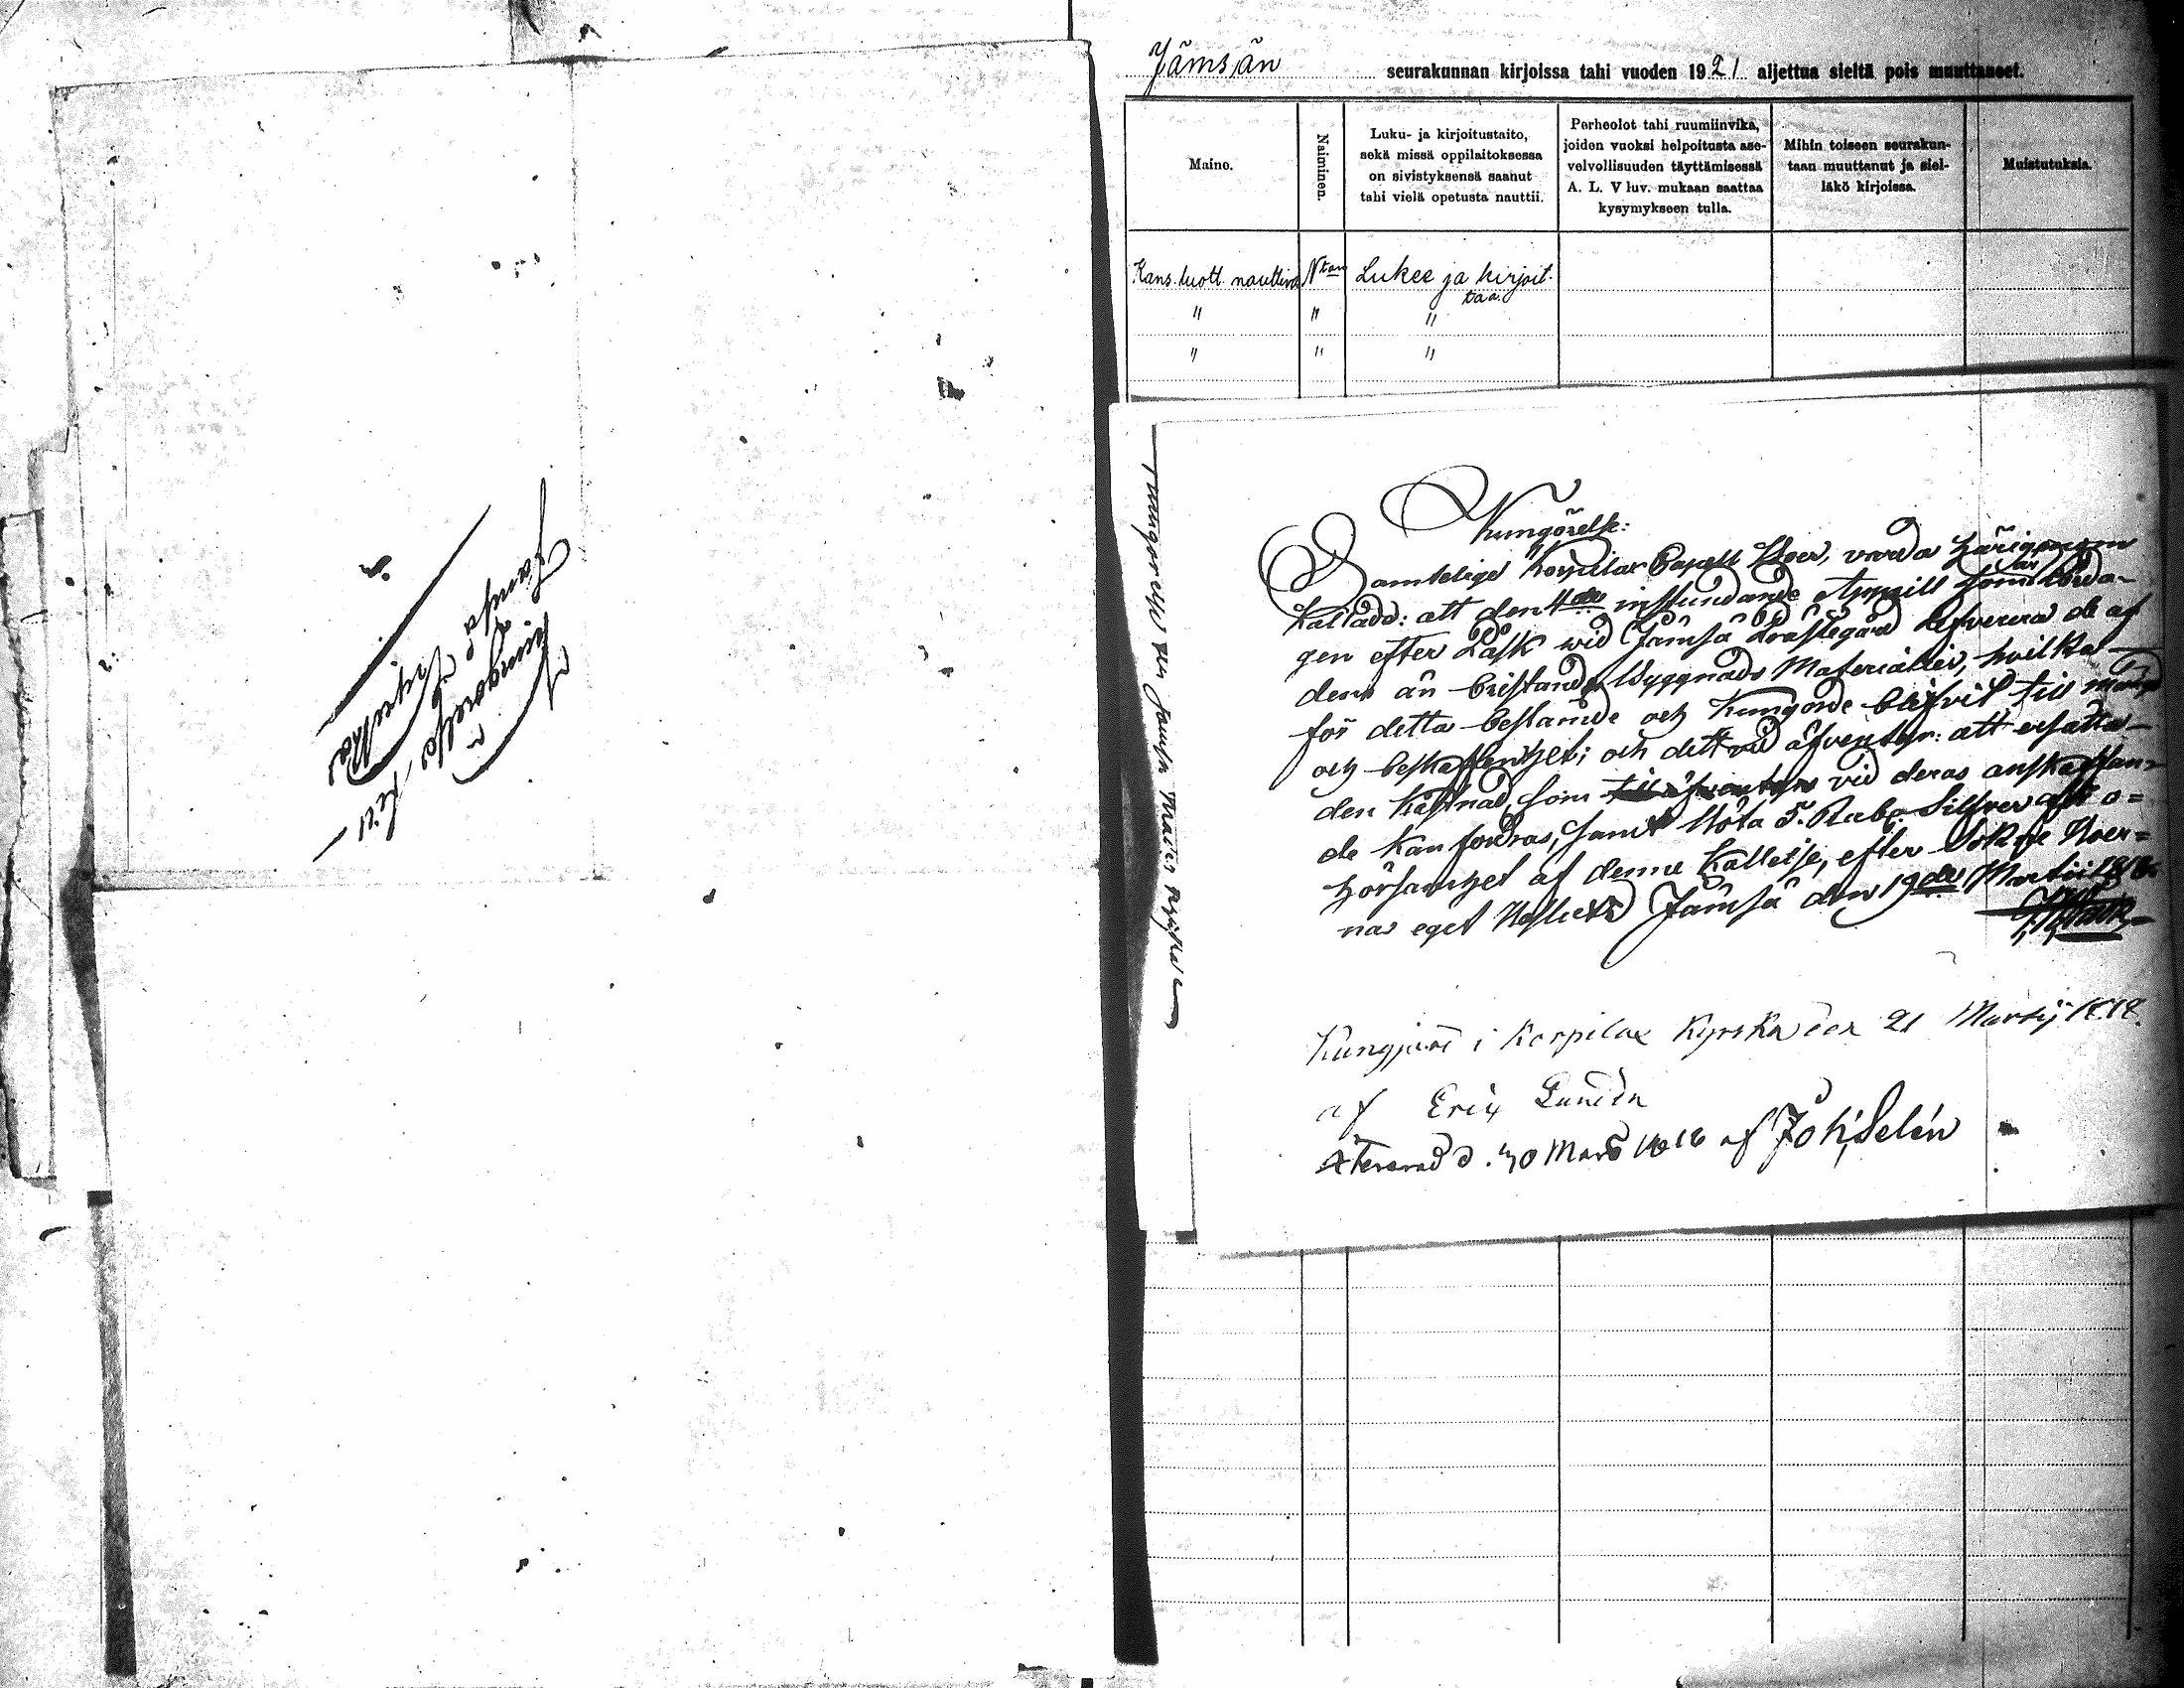 Jämsän seurakunnan kirjoissa tahi vuoden 1921 aljettua sieltä pois muuttaneet.
Maine.
Naiminen.
Luku- ja kirjoitustaito,
sekä missä oppilaitoksessa
on sivistyksensä saanut
tahi vielä opetusta nauttii.
Perheolot tahi ruumiinvika,
joiden vuoksi helpoitusta ase-
velvollisuuden täyttämisessä
A. L. V luv. mukaan saattaa
kysymykseen tulla.
Mihin toiseen seurakun-
taan muuttanut ja siel-
läkö kirjoissa.
Muistutuksia.
Kans. luott. nauttiva Nton Lukee ja kirjoit-
taa.
" " "
" " "
Kungörelse:
Samtelige Korpilax Capell Boer, varda härigenom
kallade: att den 4de instundande Apprill som är Lörda-
gen efter Påsk wid Jämsä Prästegård lefverera de af
dem än bristande Byggnads Materialier, hvilka
för detta bestämde och kungörde blifvit till mängd
och beskaffenhet; och dett vid äfventyr: att ersätta
den kåstnad, som till äfventyrs vid deras anskaffan-
de kan fordras, samt böta 5. Rub. Silfver för o=
hörsamhet af denne kallelse, efter Sokne Boer=
nas eget Beslut. Jämsä den 19de Martii 1818
Kungjort i Korpilax Kyrka den 21 Martij 1818.
af Eric Lunden
Återsänd d. 30 Mars 1818 af Joh. Selén
Kungörelse
Jämsä